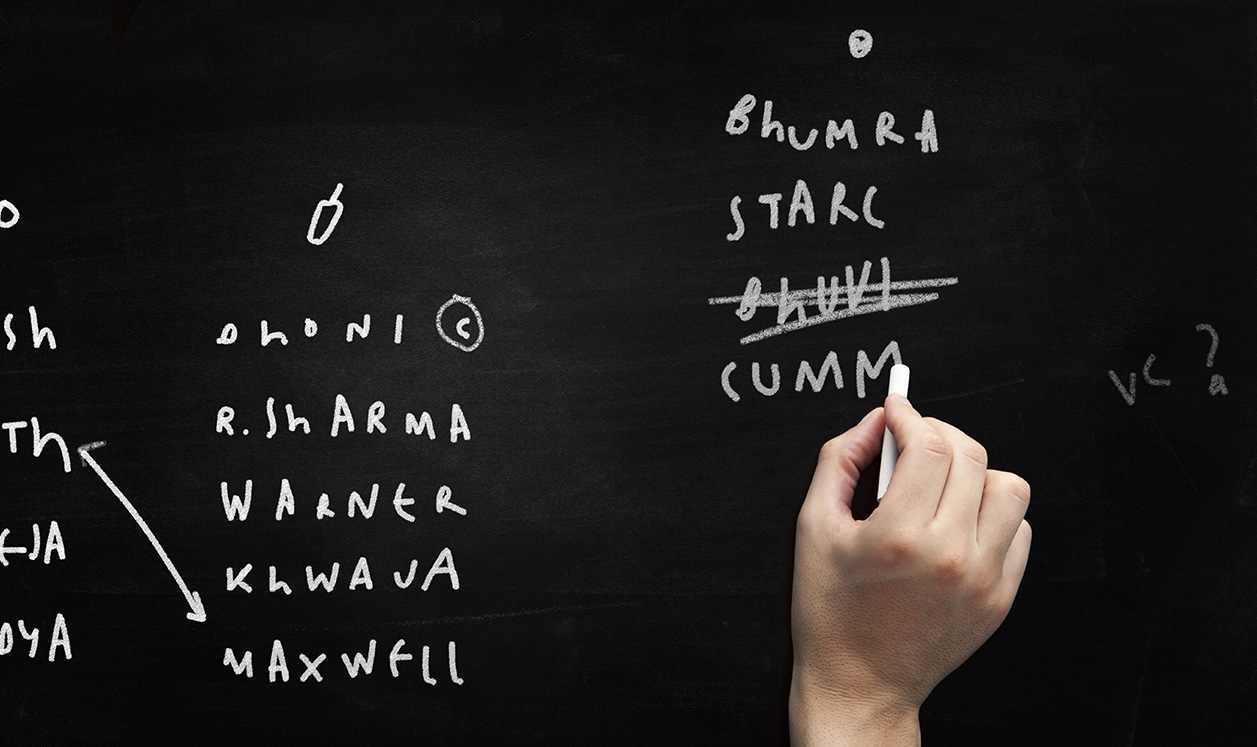 sh
Th
EJA
DYA
DhONI C
R. ShARMA
WARNER
KhWAJA
MAXWEll
BhUMRA
STARC
BhUVI
CUMM
VC ?